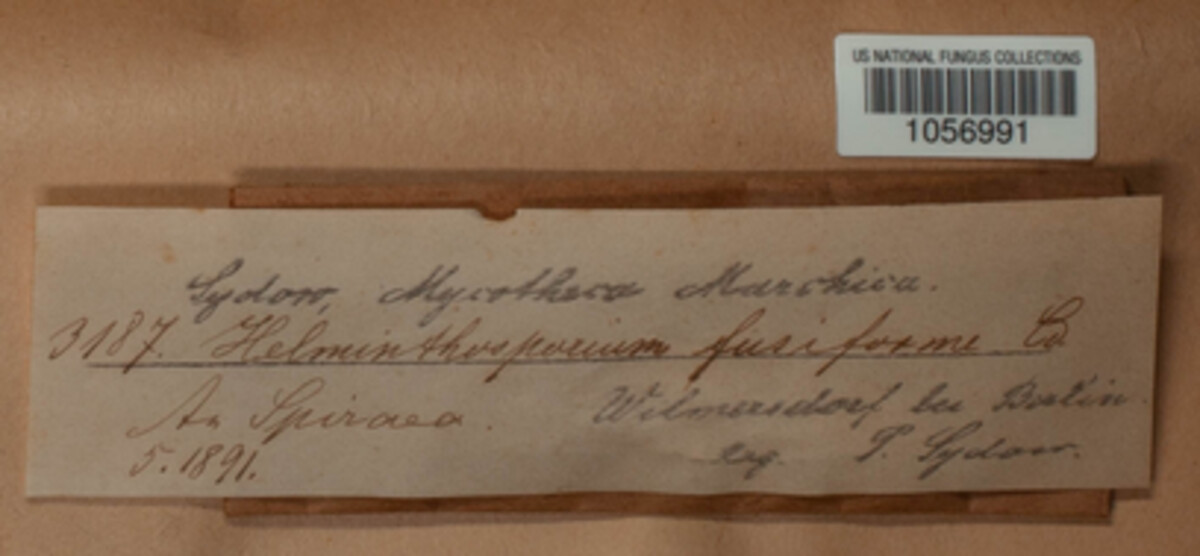 US NATIONAL FUNGUS COLLECTIONS
1056991
Sydow, Mycotheca Marchica.
3187. Helminthosporium fusiforme Cd
An Spiraea.
Wilmersdorf bei Berlin.
5. 1891.
leg. P. Sydow.